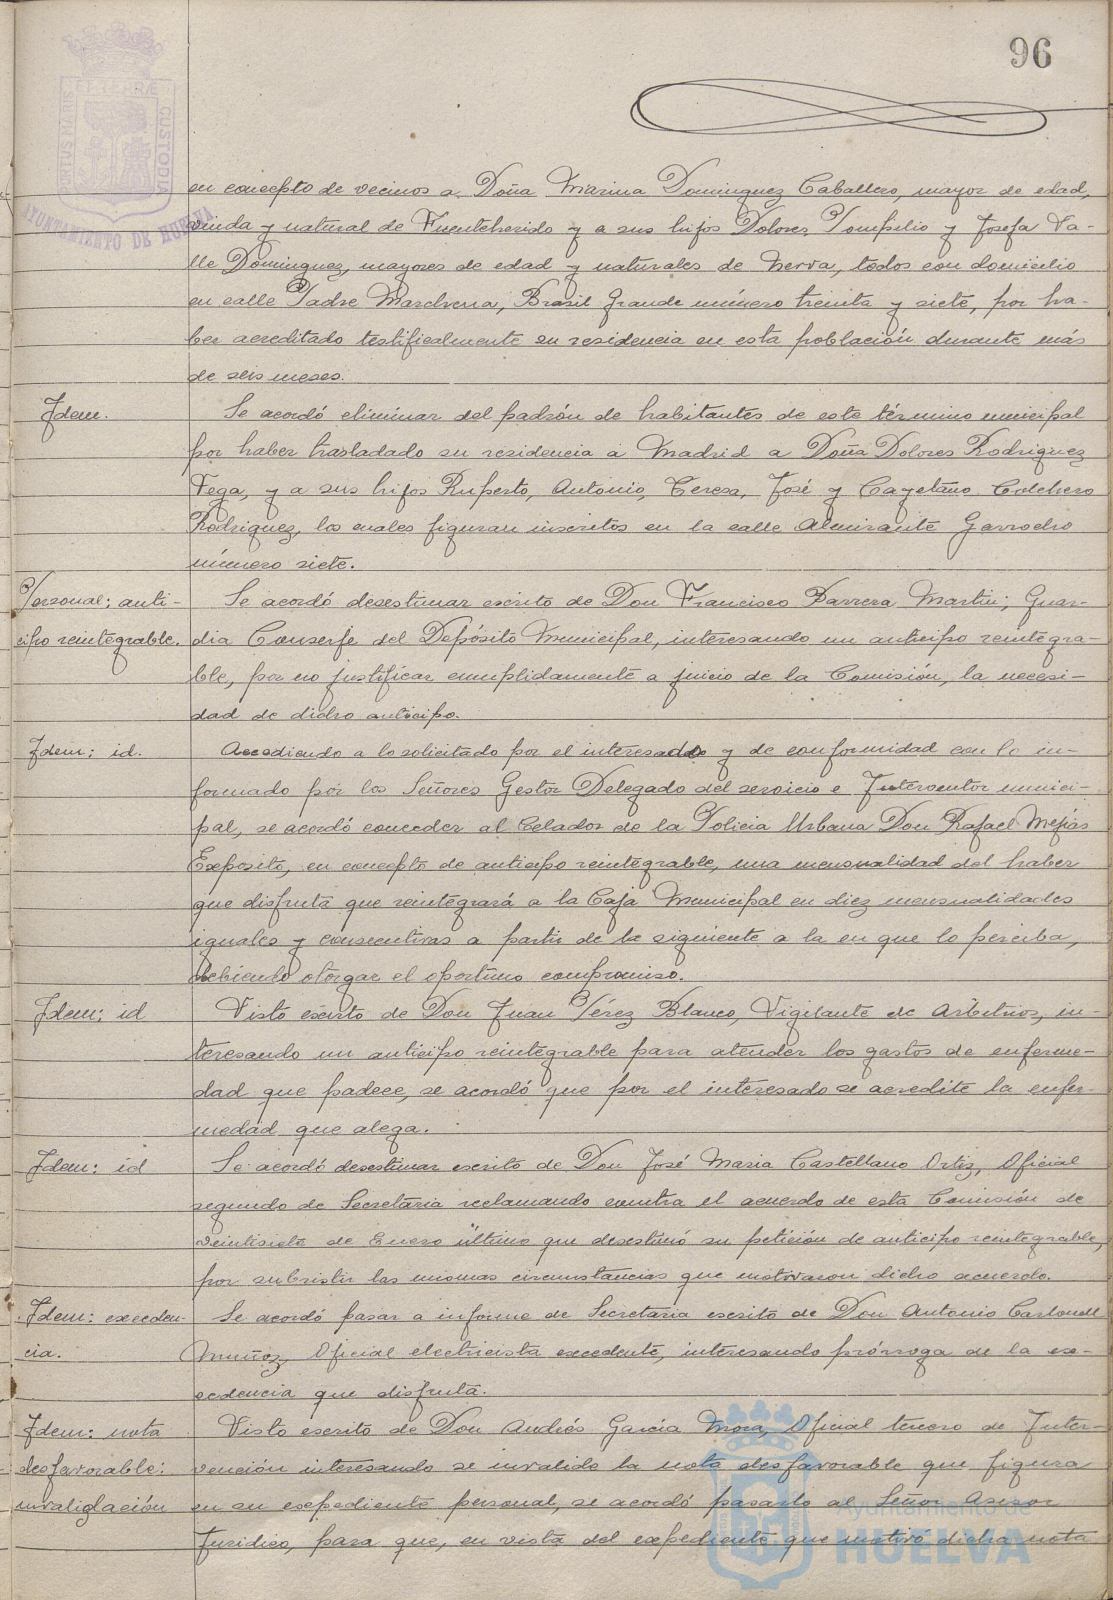 96
PORTUS MARIS ET TERRÆ CUSTODIA
AYUNTAMIENTO DE HUELVA
en concepto de vecinos a Doña Marina Dominguez Caballero, mayor de edad,
viuda y natural de Fuenteherido y a sus hijos Dolores, Pompilio y Josefa Va-
lle Dominguez, mayores de edad y naturales de Nerva, todos con domicilio
en calle Padre Marchena, Brasil Grande número treinta y siete, por ha-
ber acreditado testificalmente su residencia en esta población durante más
de seis meses.
Idem.
Se acordó eliminar del padrón de habitantes de este término municipal
por haber trasladado su residencia a Madrid a Doña Dolores Rodriguez
Vega, y a sus hijos Ruperto, Antonio, Teresa, José y Cayetano Colchero
Rodriguez, los cuales figuran inscritos en la calle Almirante Garrocho
número siete.
Personal: anti-
cipo reintegrable.
Se acordó desestimar escrito de Don Francisco Barrera Martin, Guar-
dia Conserje del Depósito Municipal, interesando un anticipo reintegra-
ble, por no justificar cumplidamente a juicio de la Comisión, la necesi-
dad de dicho anticipo.
Idem: id.
Accediendo a lo solicitado por el interesado y de conformidad con lo in-
formado por los Señores Gestor Delegado del servicio e Interventor munici-
pal, se acordó conceder al Celador de la Policia Urbana Don Rafael Mejias
Exposito, en concepto de anticipo reintegrable, una mensualidad del haber
que disfruta que reintegrará a la Caja Municipal en diez mensualidades
iguales y consecutivas a partir de la siguiente a la en que lo perciba,
debiendo otorgar el oportuno compromiso.
Idem: id
Visto escrito de Don Juan Pérez Blanco, Vigilante de Arbitrios, in-
teresando un anticipo reintegrable para atender los gastos de enferme-
dad que padece, se acordó que por el interesado se acredite la enfer-
medad que alega.
Idem: id
Se acordó desestimar escrito de Don José Maria Castellano Ortiz, Oficial
segundo de Secretaria reclamando contra el acuerdo de esta Comisión de
veintisiete de Enero último que desestimó su petición de anticipo reintegrable,
por subsistir las mismas circunstancias que motivaron dicho acuerdo.
Idem: exceden-
cia.
Se acordó pasar a informe de Secretaria escrito de Don Antonio Carbonell
Muñoz, Oficial electricista excedente, interesando prórroga de la ex-
cedencia que disfruta.
Idem: nota
desfavorable:
invalidación
Visto escrito de Don Andrés García Mora, Oficial tercero de Inter-
vención interesando se invalide la nota desfavorable que figura
en su expediente personal, se acordó pasarlo al Señor Asesor
Juridico, para que, en vista del expediente que motivó dicha nota
Ayuntamiento de
HUELVA